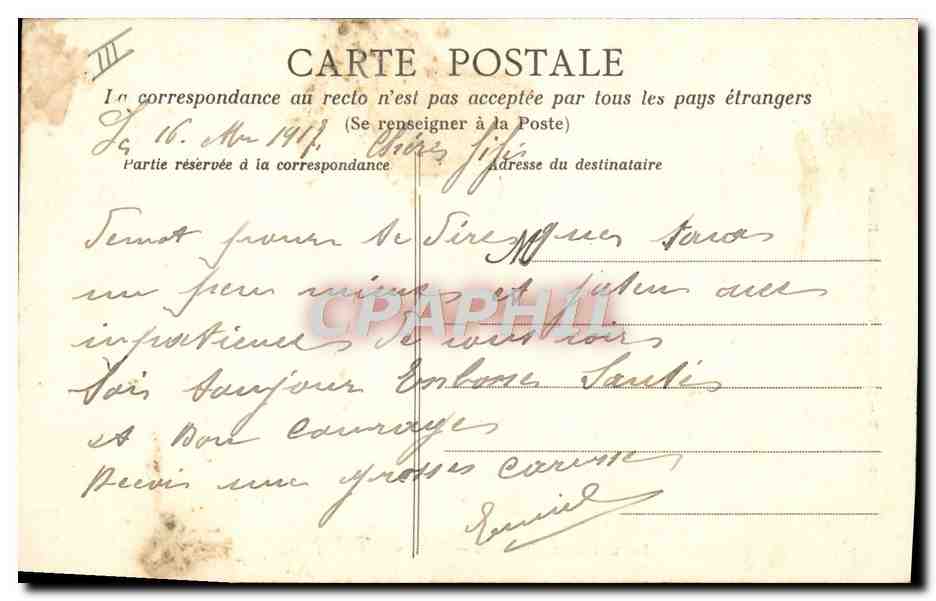 III
CARTE POSTALE
La correspondance au recto n'est pas acceptée par tous les pays étrangers
(Se renseigner à la Poste)
Le 16. Mai 1917. Chères fifis
Partie réservée à la correspondance Adresse du destinataire
M
pour te dires que
un peu mieux et avec
inpatiences de vous voirs
Sois toujour En bonne Santés
et Bon Courages
Recois une grosses caresses
CPAPHIL